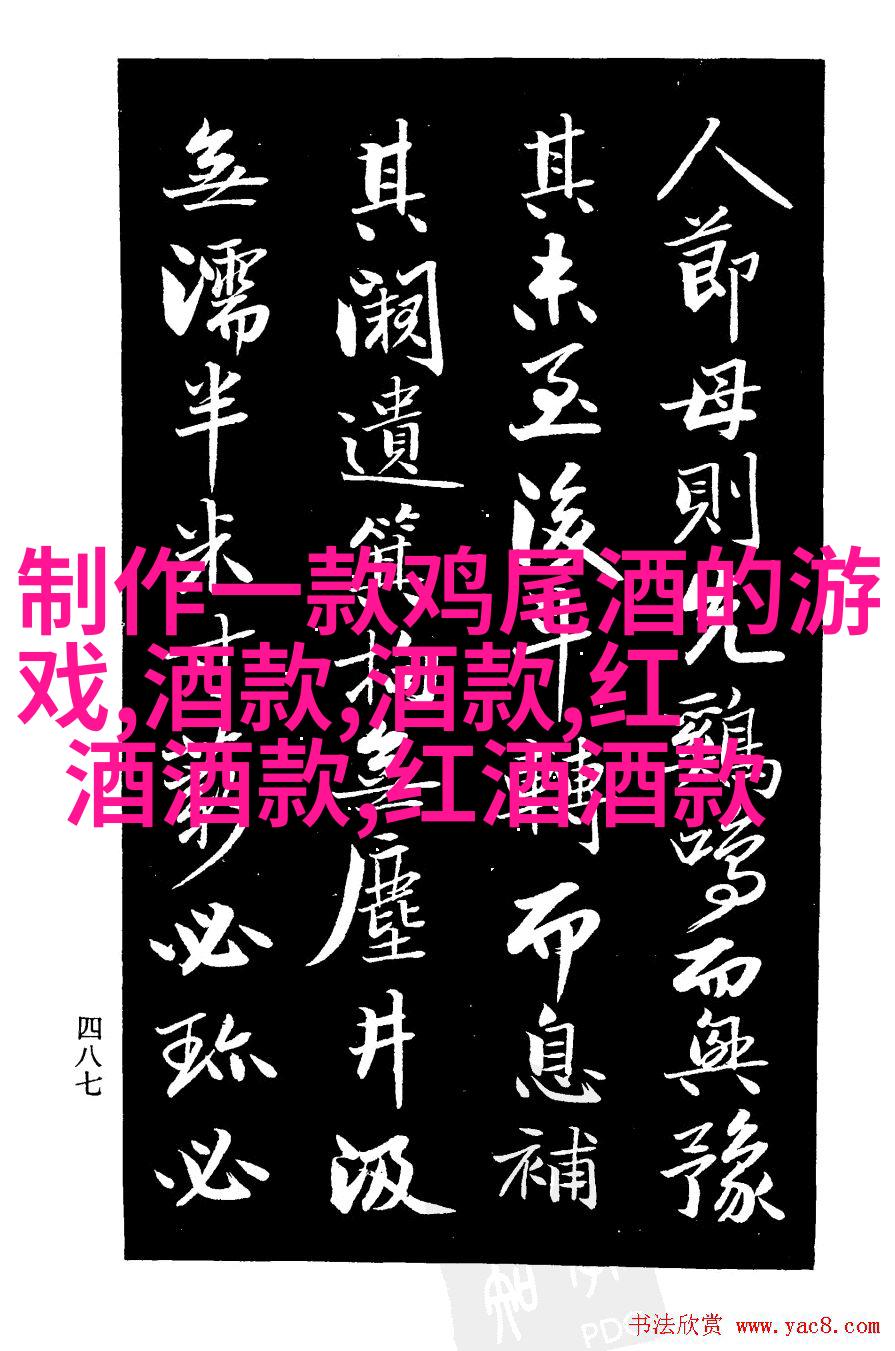 人節母則先鷄鳴而興豫
其未至後 轉而息補
其闕遺 無塵井汲
無濡半米寸薪必珎必
制作一款鸡尾酒的游
戏,酒款,酒款,红
酒酒款,红酒酒款
四八七
书法欣赏 www.yac8.com